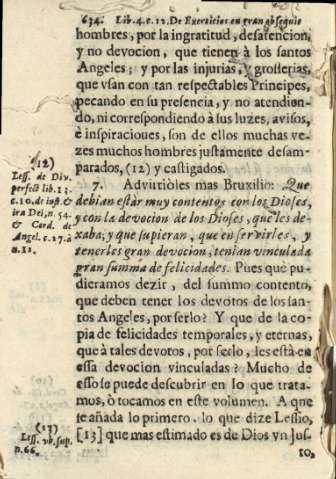 634. Lib.4.c.12. De Exercicios en gran obsequio
hombres, por la ingratitud, desatencion,
y no devocion, que tienen à los santos
Angeles; y por las injurias, y grosserias,
que vsan con tan respectables Principes,
pecando en su presencia, y no atendien-
do, ni correspondiendo à sus luzes, avisos,
è inspiraciones, son de ellos muchas ve-
zes muchos hombres justamente desam-
parados, (12) y castigados.
(12)
Less. de Div.
perfect lib.13.
c.10. de inf. &
ira Dei, n.54.
& Card. de
Angel. c.27. à
n.12.
7. Advirtiòles mas Bruxilio: Que
debian estàr muy contentos con los Dioses,
y con la devocion de los Dioses, que les de-
xaba; y que supieran, que en servirles, y
tenerles gran devocion, tenian vinculada
gran summa de felicidades. Pues què pu-
dieramos dezir, del summo contento,
que deben tener los devotos de los san-
tos Angeles, por serlo? Y que de la co-
pia de felicidades temporales, y eternas,
que à tales devotos, por serlo, les està en
essa devocion vinculadas? Mucho de
esso se puede descubrir en lo que trata-
mos, ò tocamos en este volumen. A que
se añada lo primero, lo que dize Lessio,
[13] que mas estimado es de Dios vn Jus-
(13)
Less. vb. sup.
n.66.
to,